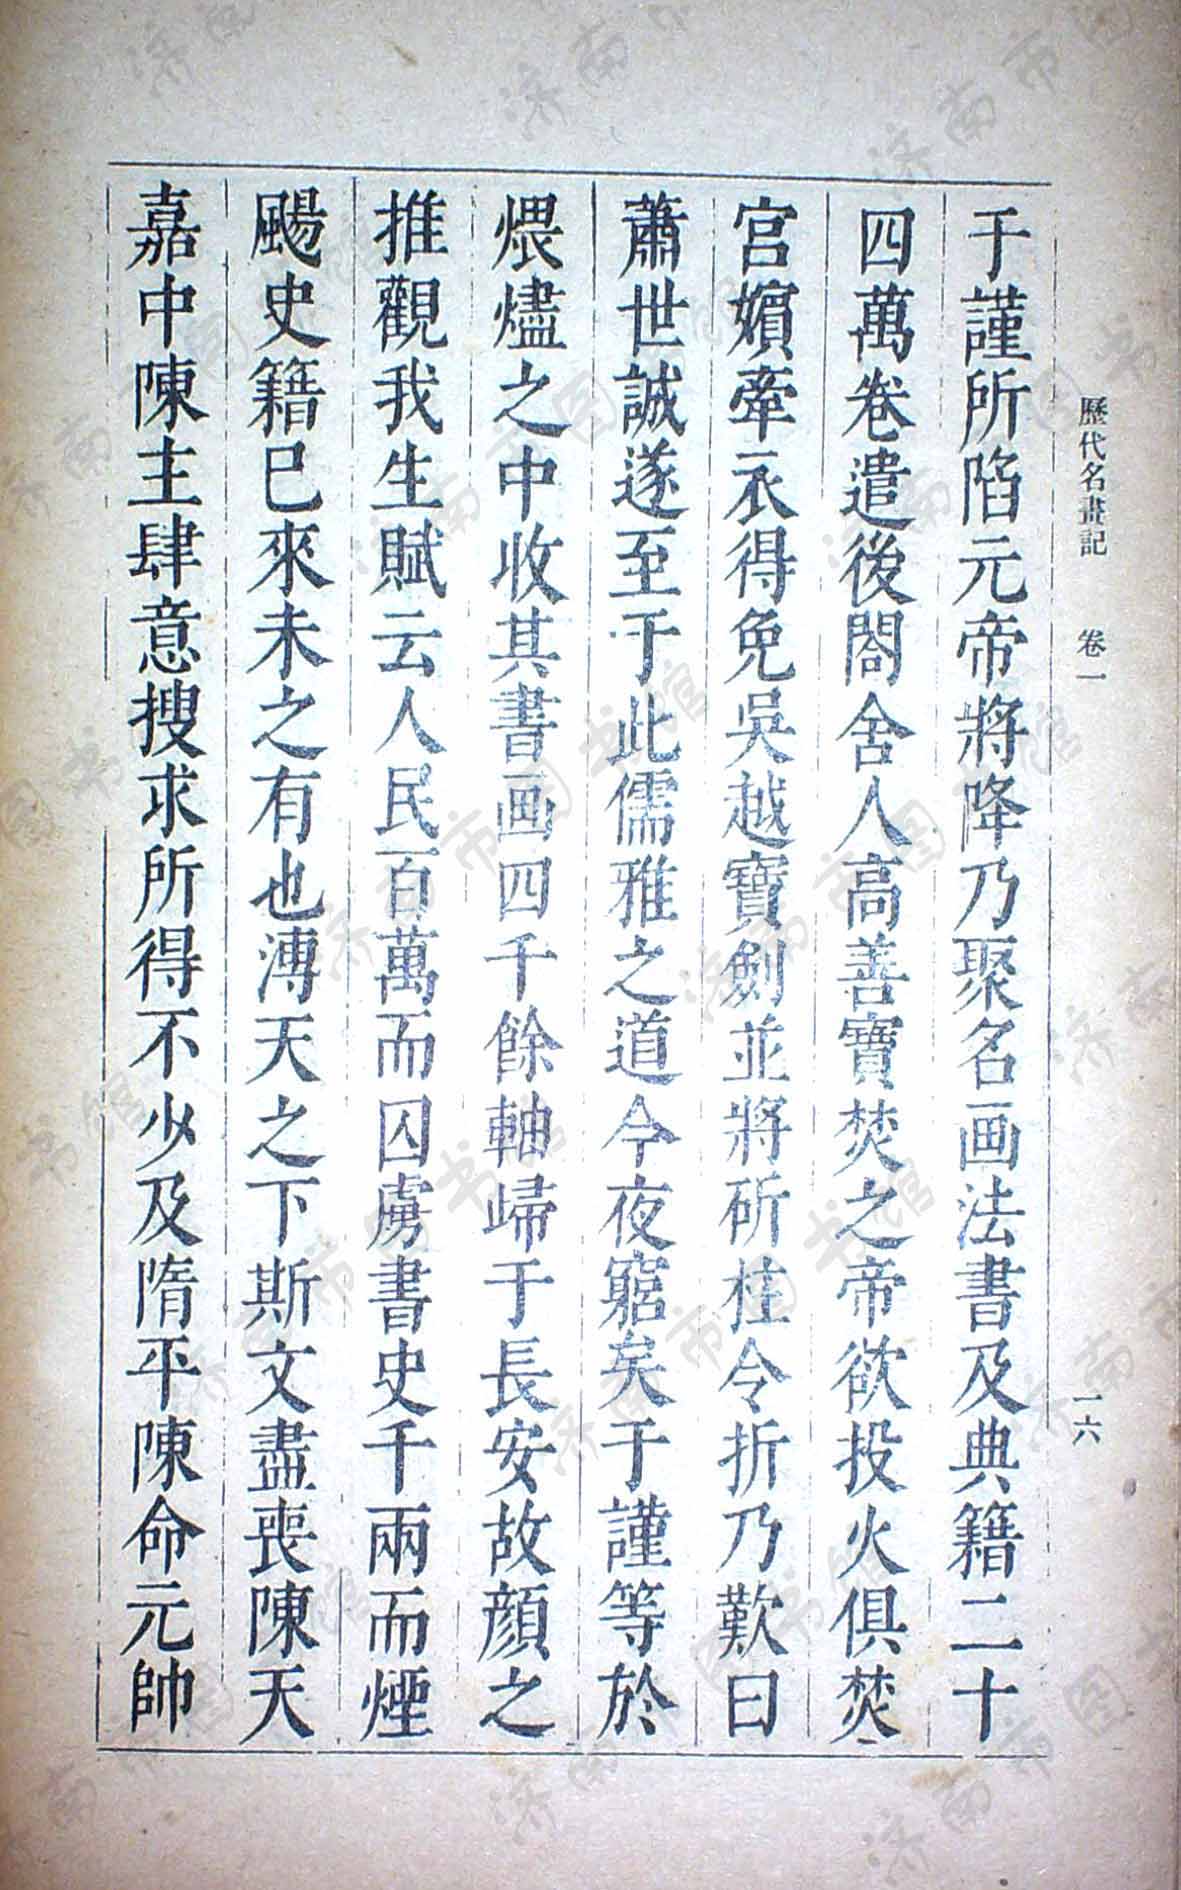 歷代名畫記　卷一　一六
于謹所陷元帝將降乃聚名画法書及典籍二十
四萬卷遣後閤舍人高善寶焚之帝欲投火俱焚
宮嬪牽衣得免吳越寶劍並將斫柱令折乃歎曰
蕭世誠遂至于此儒雅之道今夜窮矣于謹等於
煨燼之中收其書画四千餘軸歸于長安故顏之
推觀我生賦云人民百萬而囚虜書史千兩而煙
颺史籍已來未之有也溥天之下斯文盡喪陳天
嘉中陳主肆意搜求所得不少及隋平陳命元帥
济南市图书馆